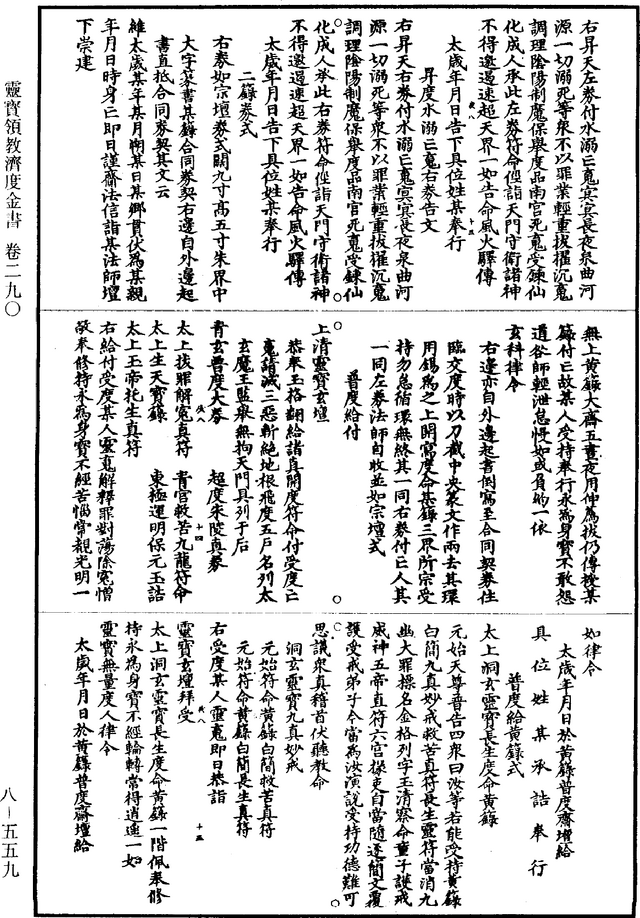 右昇天左券付水溺亡魂冥冥長夜泉曲河
源一切溺死等衆不以罪業輕重拔擢沉魂
調理陰陽制魔保舉度品南宮死魂受鍊仙
化成人承此左券符命徑詣天門守衛諸神
不得邀遏速超天界一如告命風火驛傳
太歲年月日告下具位姓某奉行
昇度水溺亡魂右券告文
右昇天右券付水溺亡魂冥冥長夜泉曲河
源一切溺死等衆不以罪業輕重拔擢沉魂
調理陰陽制魔保舉度品南宮死魂受鍊仙
化成人承此右券符命徑詣天門守衛諸神
不得邀遏速超天界一如告命風火驛傳
太歲年月日告下具位姓某奉行
二籙券式
右券如宗壇券式闊九寸高五寸朱界中
大字篆書其籙合同券契右邊自外邊起
書直抵合同券契其文云
維太歲某年某月朔某日某鄉貫伏為某親
年月日時身亡即日謹齋法信詣某法師壇
下崇建
無上黃籙大齋五晝夜用伸薦拔仍傳授某
籙付亡故某人受持奉行永為身寶不敢怨
道咎師輕泄怠慢如或負的一依
玄科律令
右邊亦自外邊起書倒寫至合同契券住
臨交度時以刀截中央篆文作兩去其環
用錫為之上開寫度命某籙三界所宗受
持勿怠循環無終其一同右券付亡人其
一同左券法師自收並如宗壇式
普度給付
上清靈寶玄壇
恭奉玉格翻給諸真開度符命付受度亡
魂請滅三惡斬絶地根飛度五戶名列太
玄魔王監舉無拘天門具列于后
青玄普度大券 超度朱陵真券
太上拔罪解冤真符 青宮救苦九龍符命
太上生天寶籙 東極運明保元玉誥
太上玉帝托生真符
右給付受度某人靈魂解釋罪對蕩除冤憎
敬奉修持永為身寶不經苦惱常覩光明一
如律令
太歲年月日於黃籙普度齋壇給
具位姓某承誥奉行
普度給黃籙式
太上洞玄靈寶長生度命黃籙
元始天尊普告四衆曰汝等若能受持黃籙
白簡九真妙戒救苦真符長生靈符當消九
幽大罪標名金格列字玉清察命童子護戒
威神五帝直符六宮掾吏自當隨逐簡文覆
護受戒弟子今當為汝演說受持功德難可
思議衆真稽首伏聽教命
洞玄靈寶九真妙戒
元始符命黃籙白簡救苦真符
元始符命黃籙白簡長生真符
右受度某人靈魂即日恭詣
靈寶玄壇拜受
太上洞玄靈寶長生度命黃籙一階佩奉修
持永為身寶不經輪轉常得逍遙一如
靈寶無量度人律令
太歲年月日於黃籙普度齋壇給
靈寶領教濟度金書 卷二九〇
八－五五九